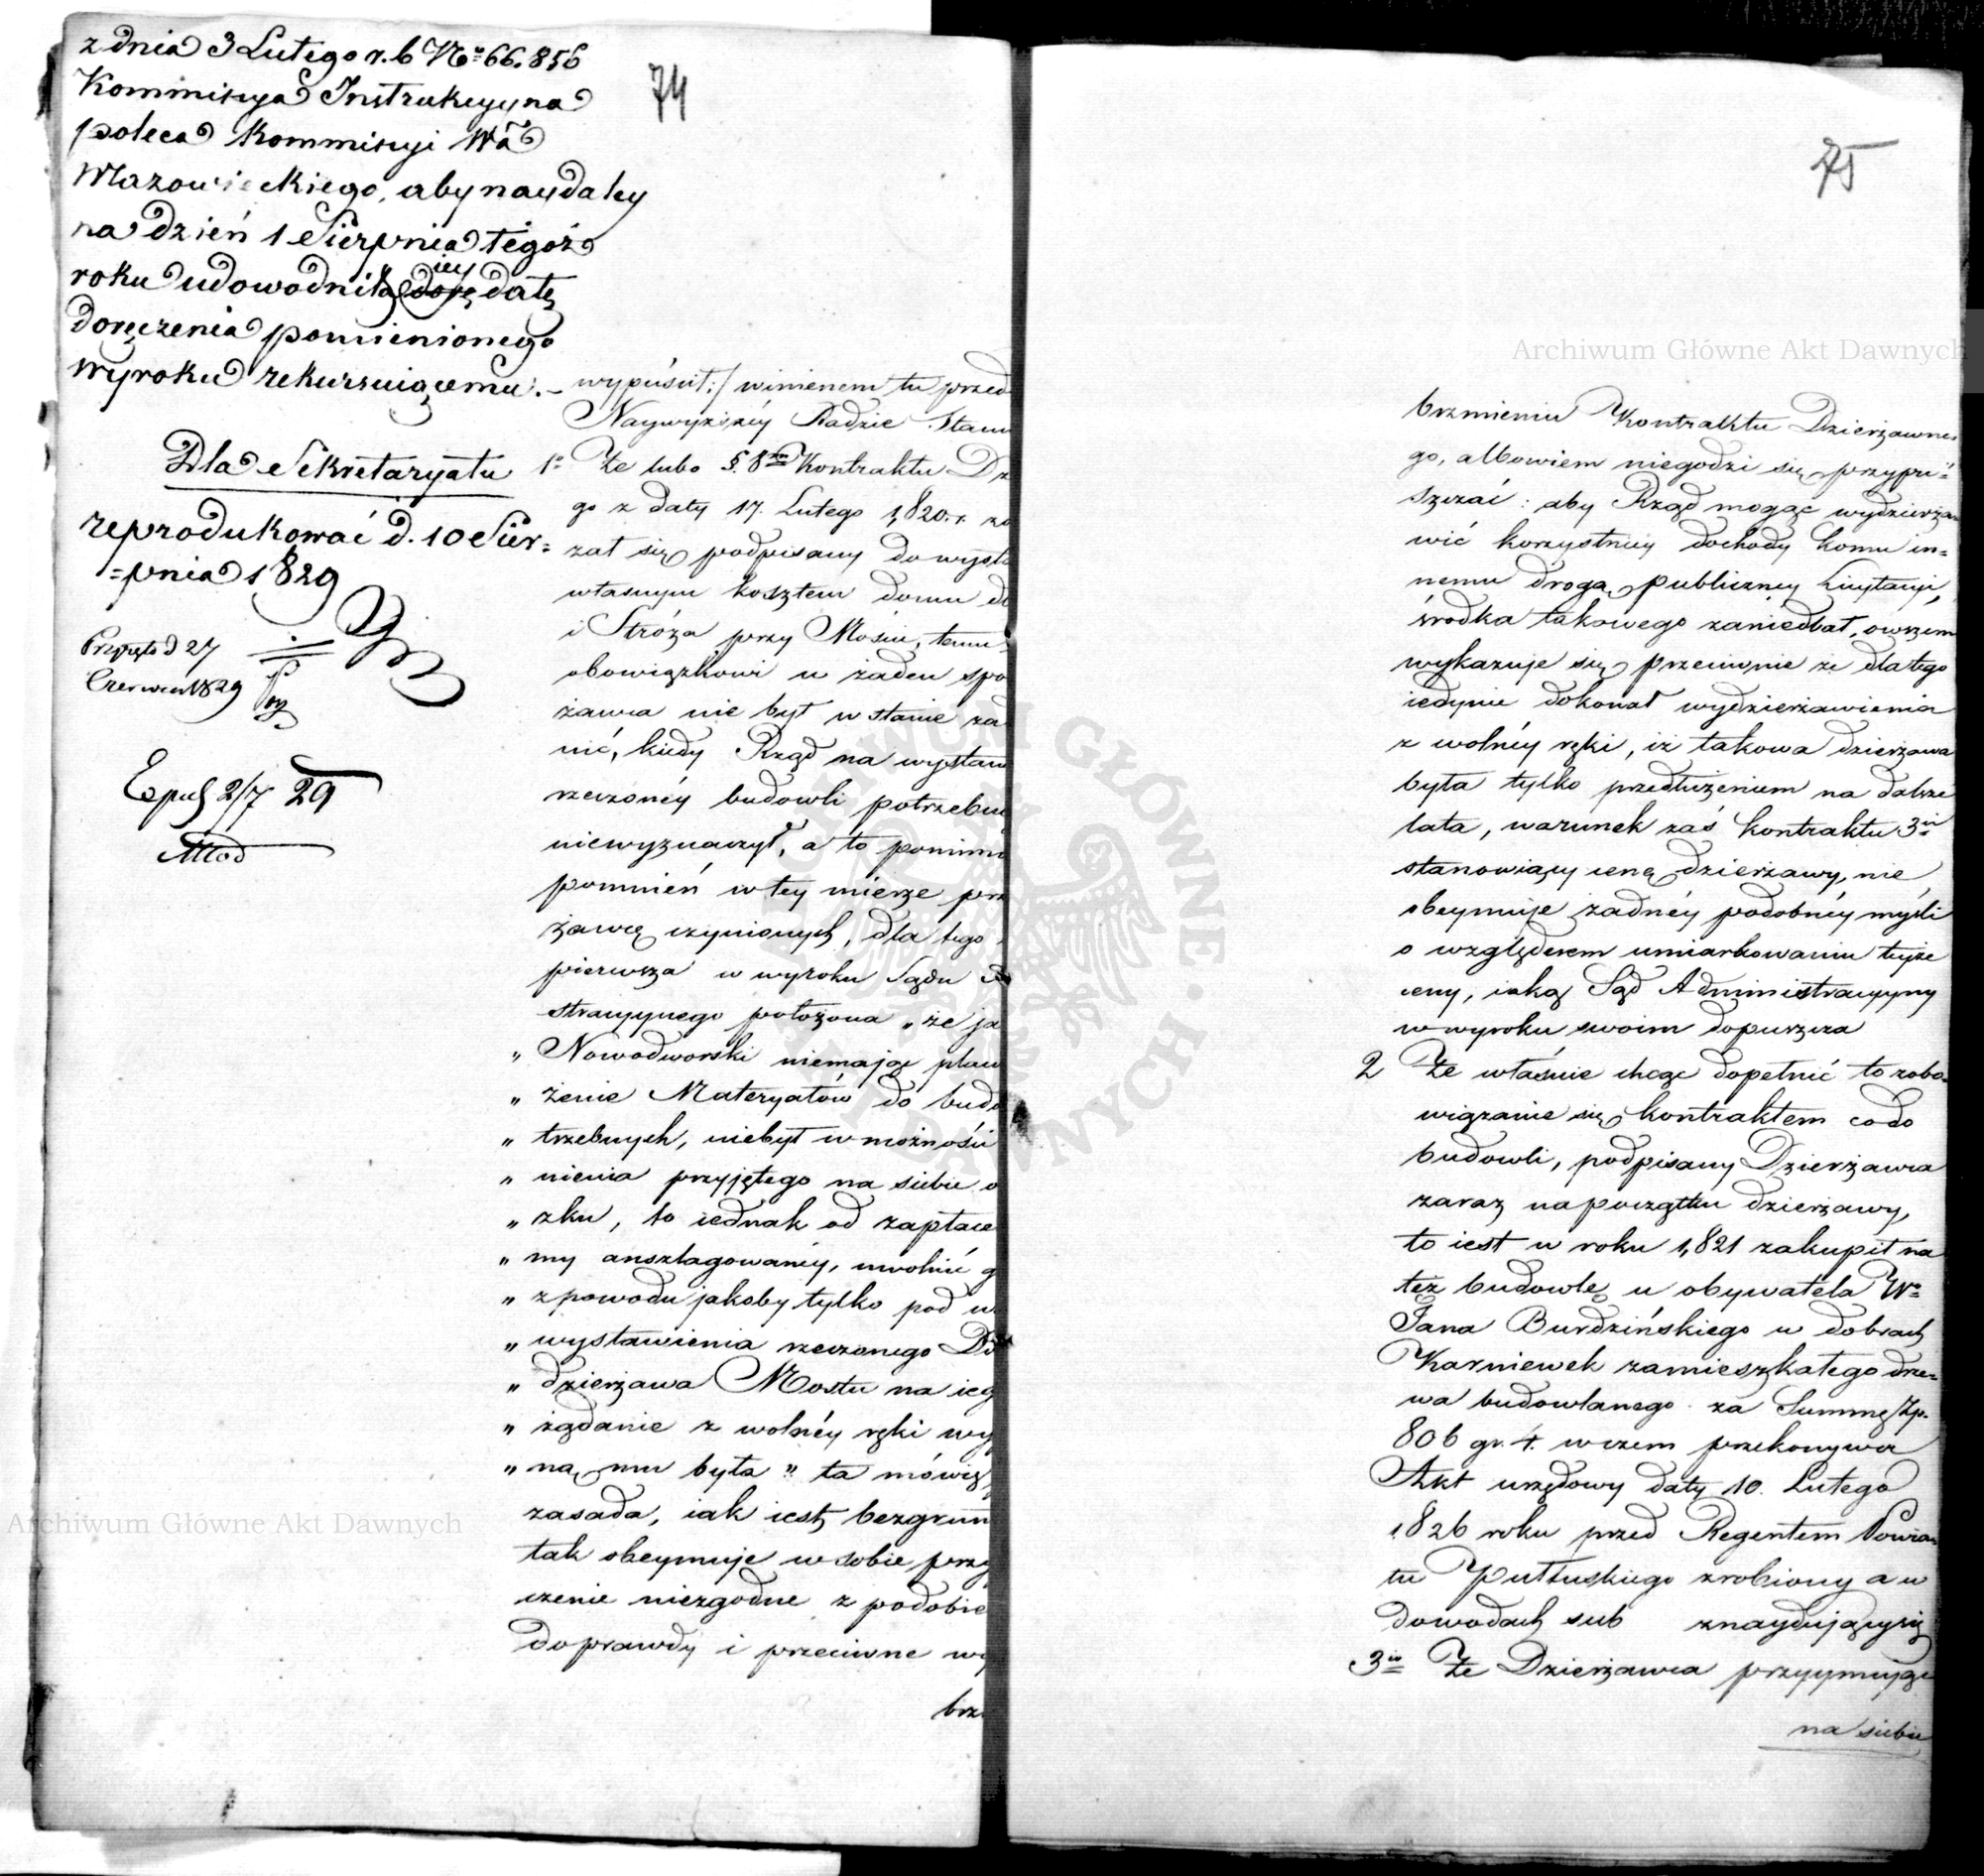 z dnia 3 Lutego r. b No 66.856
Kommissya Instrukcyyna
poleca Kommissyi Wa
Mazowieckiego, aby naydaley
na dzień 1 Sierpnia tegoż
roku udowodniła iey datę
doręczenia pomienionego
wyroku rekursuiącemu. –
Dla Sekretaryatu
reprodukować d. 10 Sier=
=pnia 1829
Przyięto d 27
Czerwca 1829
Exped 2/7 29
74
wypuścił :/ winienem tu przed
Naywyższéy Radzie Stanu
1o Że lubo §. 8m Kontraktu Dz
go z daty 17. Lutego 1,820. r. zo
zał się podpisany do wysta
własnym kosztem domu dl
i Stróża przy Moście, temu
obowiązkowi w żaden spo
żawca nie był w stanie za
nić, kiedy Rząd na wystaw
rzeczonéy budowli potrzebn
niewyznaczył, a to pomimo
pomnień w tey mierze prz
żawcę czynionych, dla tego
pierwsza w wyroku Sądu
stracyynego położona „ że ja
„ Nowodworski niemając plac
„ żenie Materyałów do budo
„ trzebnych, niebył w możności
„ nienia przyjętego na siebie o
„ zku, to iednak od zapłace
„ my anszlagowanéy, uwolnić g
„ z powodu jakoby tylko pod w
„ wystawienia rzeczonego Do
„ dzierżawa Mostu na ieg
„ żądanie z wolnéy ręki wy
„ ną mu była „ ta mówię
zasada, iak iest bezgrun
tak obeymuje w sobie przy
czenie niezgodne z podobie
do prawdy i przeciwne wy
brz
75
brzmieniu Kontraktu Dzierżawne
go, albowiem niegodzi się przypu=
szczać : aby Rząd mogąc wydzierża
wić korzystniey dochody komu in=
nemu drogą publiczney Licytacyi,
środka takowego zaniedbał, owszem
wykazuje się przeciwnie że dla tego
iedynie dokonał wydzierżawienia
z wolnéy ręki, iż takowa dzierżawa
była tylko przedłużeniem na dalsze
lata, warunek zaś kontraktu 3ci
stanowiący cenę dzierżawy, nie
obeymuje żadnéy podobnéy myśli
o względnem umiarkowaniu teyże
ceny, iaką Sąd Administracyyny
w wyroku swoim dopuszcza
2 Że właśnie chcąc dopełnić to zobo=
wiązanie się kontraktem co do
budowli, podpisany Dzierżawca
zaraz na początku dzierżawy,
to iest w roku 1,821 zakupił na
też budowlę u obywatela Wo
Jana Burdzińskiego w dobrach
Karniewek zamieszkałego drze=
wa budowlanego za Summę Zp.
806 gr. 4. w czem przekonywa
Akt urzędowy daty 10. Lutego
1826 roku przed Regentem Powia
tu Pułtuskiego zrobiony a w
dowodach sub znaydujący się
3io Że Dzierżawca przyymując
na siebie
Archiwum Główne Akt Dawnych
Archiwum Główne Akt Dawnych